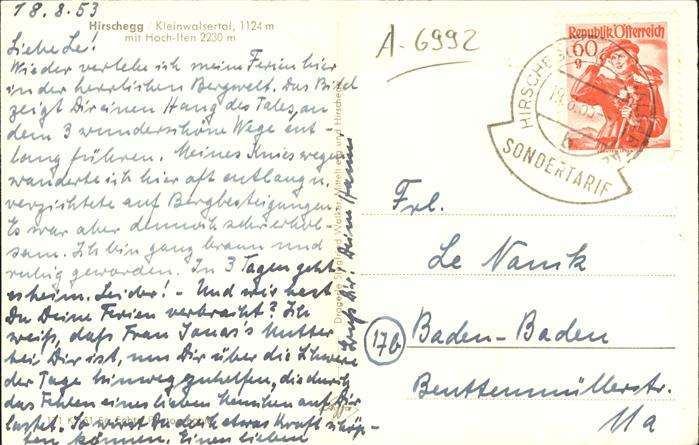 18.8.53
Hirschegg / Kleinwalsertal, 1124 m
mit Hoch-Ifen 2230 m
Liebe Le!
Wieder verlebe ich meine Ferien hier
in der herrlichen Bergwelt. Das Bild
zeigt Dir einen Hang des Tales, an
dem 3 wunderschöne Wege ent-
lang führen. Meines Knies wegen
wanderte ich hier oft entlang u.
verzichtete auf Bergbesteigungen.
Es war aber dennoch sehr erhol-
sam. Ich bin ganz braun und
ruhig geworden. In 3 Tagen geht
es heim. Leider! - Und wie hast
Du Deine Ferien verbracht? Ich
weiß, daß Frau Jonas's Mutter
bei Dir ist, um Dir über die Schwere
der Tage hinwegzuhelfen, die durch
das Fehlen eines lieben Menschen auf Dir
lastet. So wirst Du doch etwas Kraft schöp-
fen können. Einen lieben
Gruß Dir! Deine Hanna
Drogerie Siegfried Walker, Mittelberg und Hirschegg
A-6992
Republik Österreich
60
g
HIRSCHEGG
19.8.53
SONDERTARIF
Frl.
Le Nanik
17b
Baden-Baden
Beuttenmüllerstr.
11a